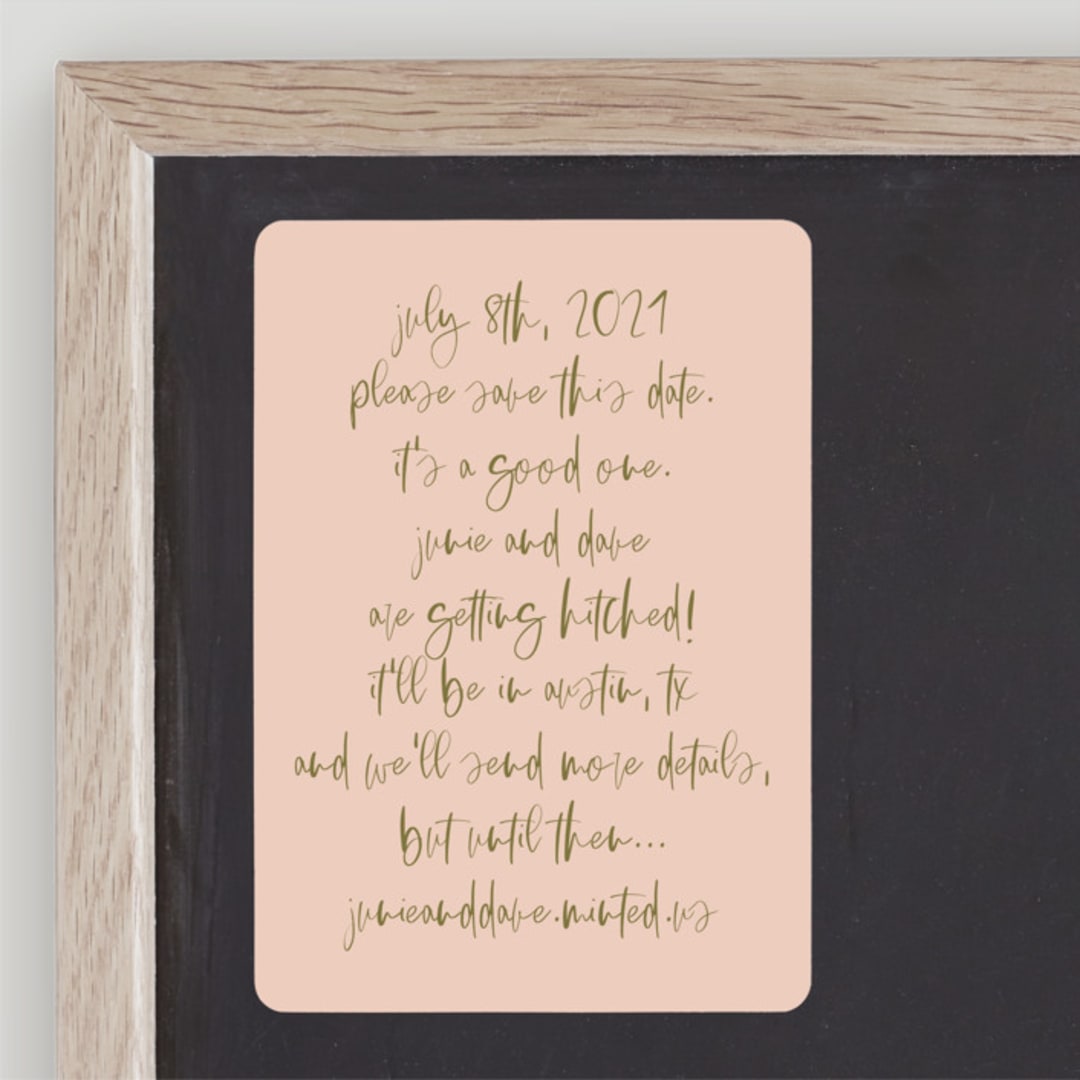 july 8th, 2021
please save this date.
it's a good one.
junie and dave
are getting hitched!
it'll be in austin, tx
and we'll send more details,
but until then...
junieanddave.minted.us